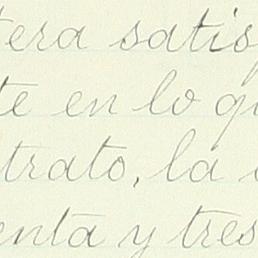 tera satis
te en lo qu
trato, la
enta y tres